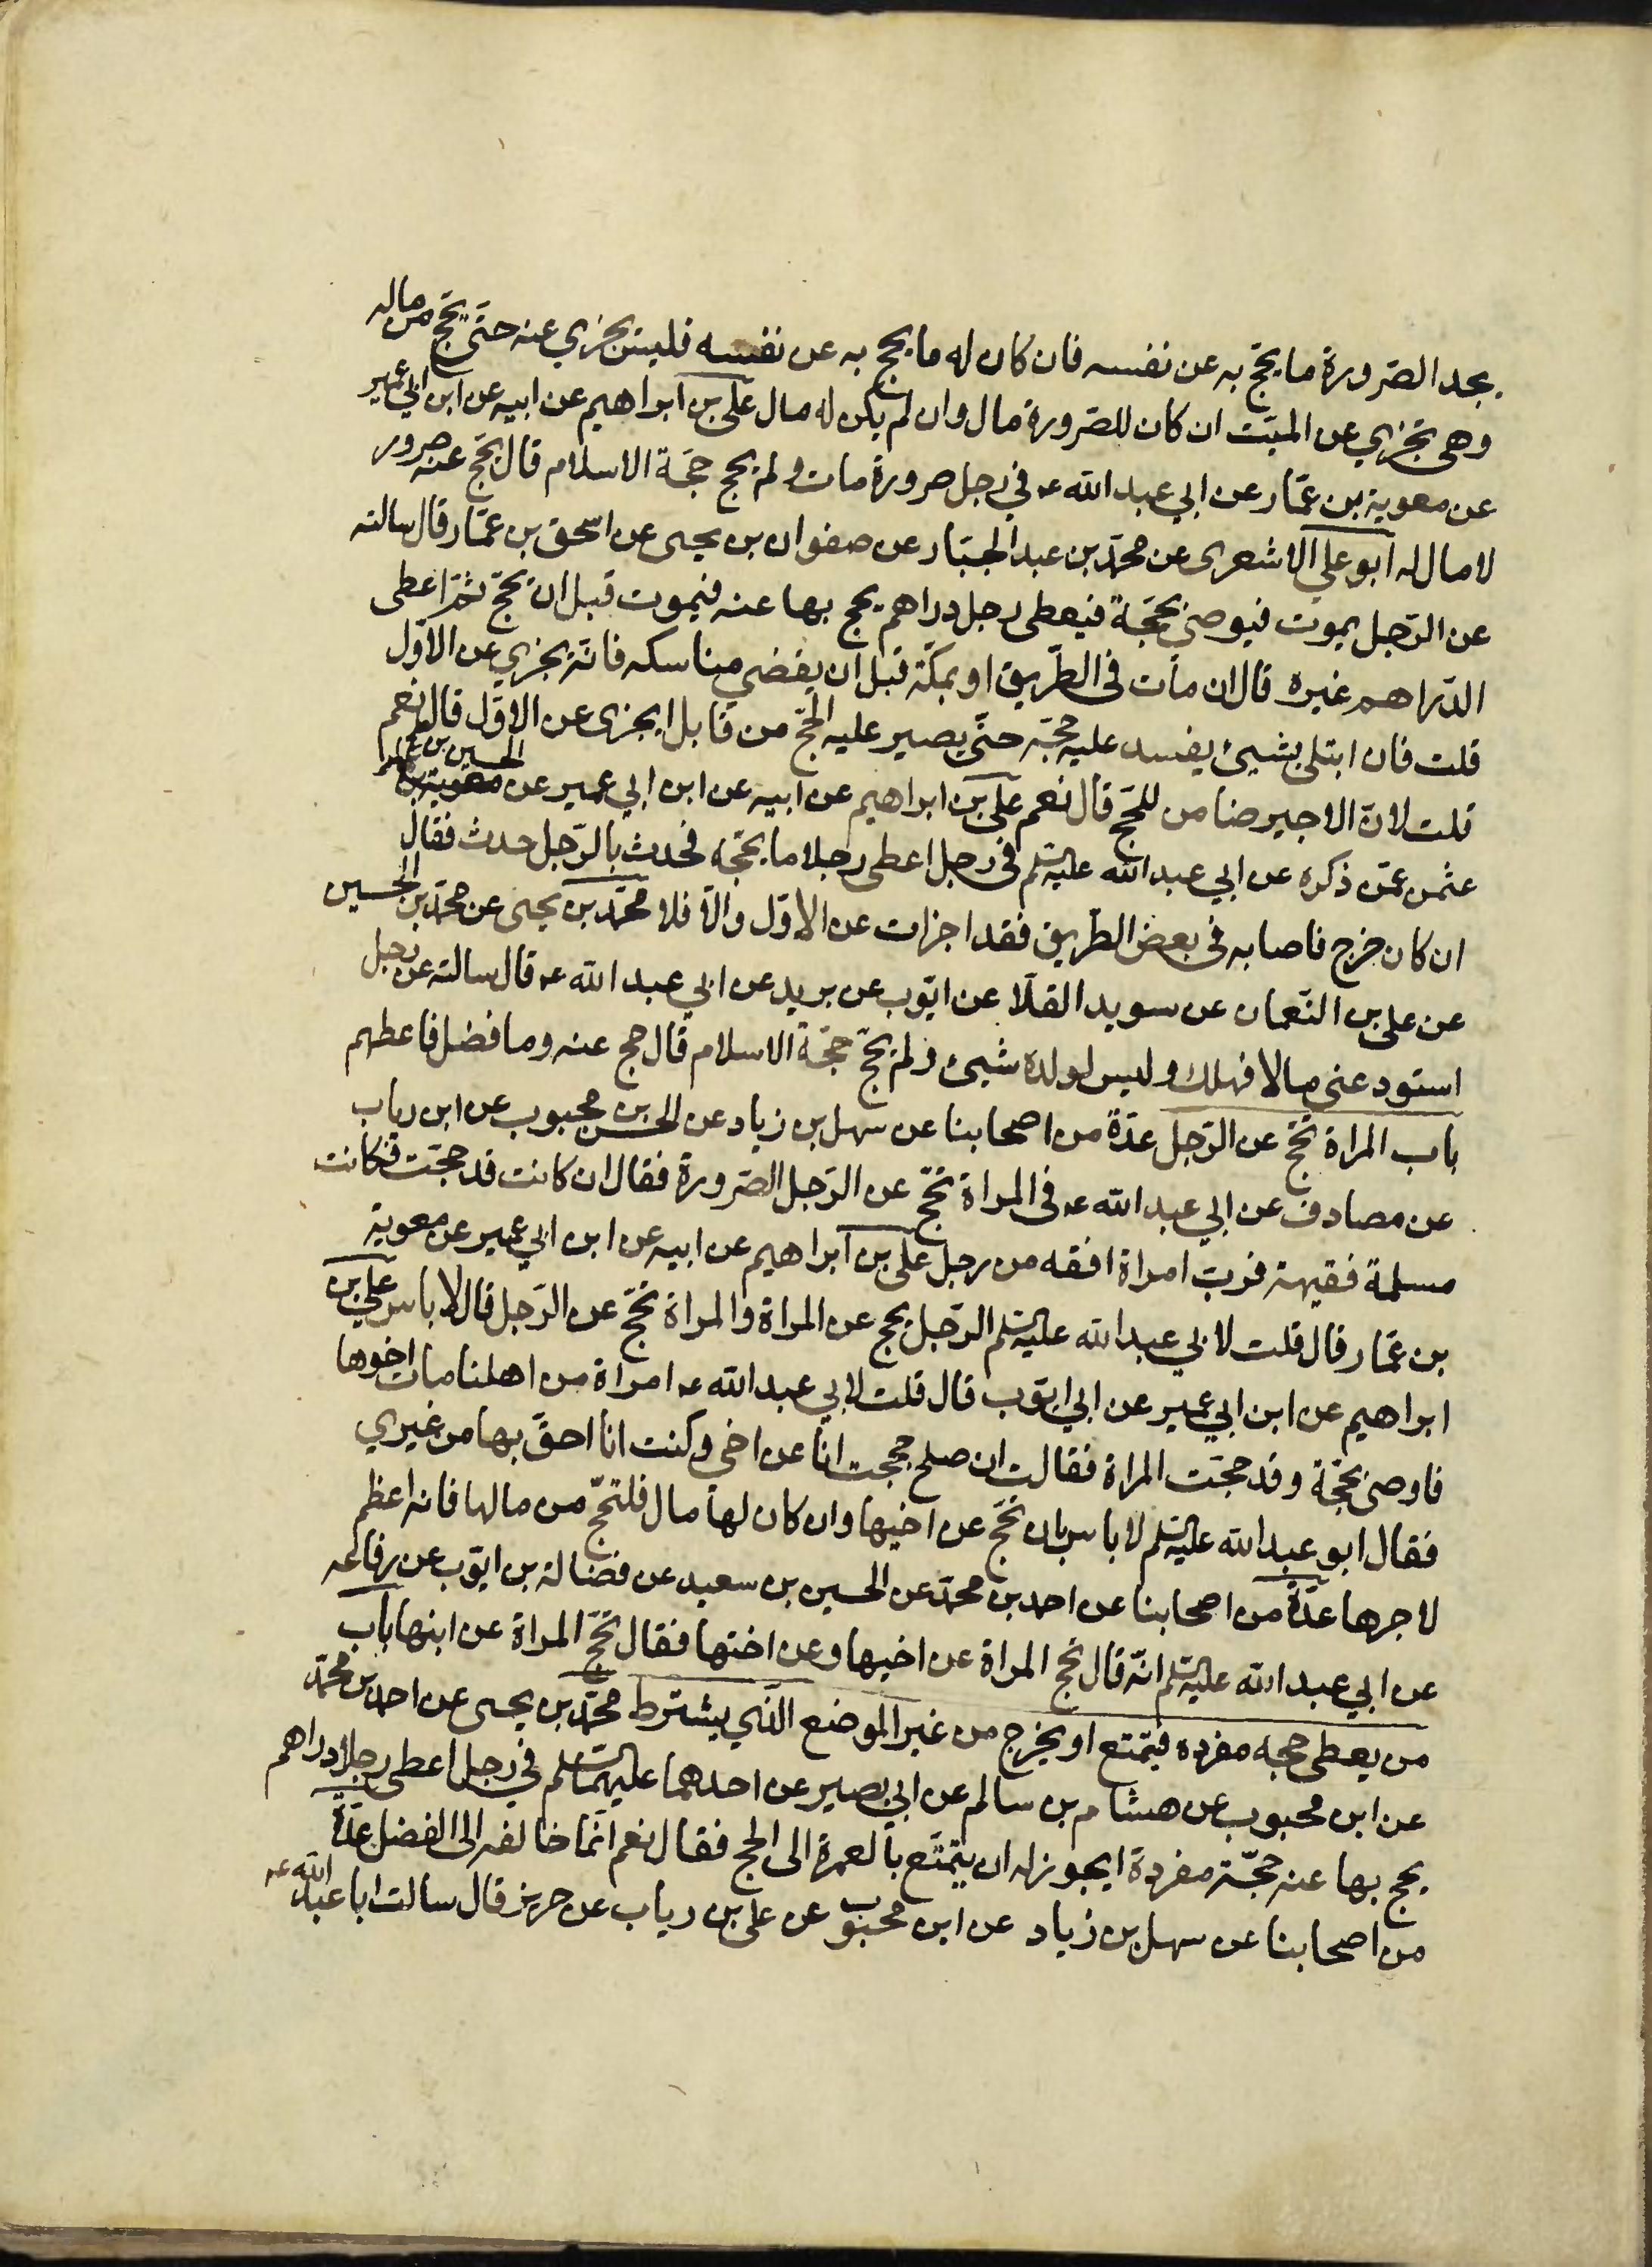 يجد الصّرورة ما يحجّ به عن نفسه فان كان له ما يحج به عن نفسه فليس يجزي عنه حتّى يحجّ من ماله
وهي تجزي عن الميّت ان كان للصّرورة مال وان لم يكن له مال علي بن ابراهيم عن ابيه عن ابن ابي عمير
عن معوية بن عمّار عن ابي عبد الله ع في رجل صرورة مات ولم يحج حجّة الاسلام قال يحجّ عنه صرورة
لا مال له ابو علي الاشعري عن محمّد بن عبد الجبّار عن صفوان بن يحيى عن اسحق بن عمّار قال سالته
عن الرّجل يموت فيوصي بحجّة فيعطى رجل دراهم يحج بها عنه فيموت قبل ان يحجّ ثمّ اعطى
الدّراهم غيره قال ان مات في الطّريق او بمكّة قبل ان يقضي مناسكه فانّه يجزي عن الاوّل
قلت فان ابتلى بشيئ يفسد عليه حجّه حتّى يصير عليه الحجّ من قابل ايجزى عن الاوّل قال نعم
قلت لانّ الاجير ضامن للحجّ قال نعم علي بن ابراهيم عن ابيه عن ابن ابي عمير عن الحسين بن
عثمن عمّن ذكره عن ابي عبد الله عليه السلم في رجل اعطى رجلا ما يحجّه فحدث بالرّجل حدث فقال
ان كان خرج فاصابه في بعض الطّريق فقد اجزات عن الاوّل والّا فلا محمّد بن يحيى عن محمّد بن الحسين
عن علي بن النّعمان عن سويد القلّا عن ايّوب عن بريد عن ابي عبد الله ع قال سالته عن رجل
استودعني مالا فهلك وليس لولده شيئ ولم يحجّ حجّة الاسلام قال حج عنه وما فضل فاعطهم
باب المراة تحجّ عن الرّجل عدّة من اصحابنا عن سهل بن زياد عن الحسن بن محبوب عن ابن رياب
عن مصادف عن ابي عبد الله ع في المراة تحجّ عن الرّجل الصّرورة فقال ان كانت قد حجّت وكانت
مسلمة فقيهة فربّ امراة افقه من رجل علي بن ابراهيم عن ابيه عن ابن ابي عمير عن معوية
بن عمّار قال قلت لابي عبد الله عليه السلم الرّجل يحج عن المراة والمراة تحجّ عن الرّجل قال لا باس علي بن
ابراهيم عن ابن ابي عمير عن ابي ايّوب قال قلت لابي عبد الله ع امراة من اهلنا مات اخوها
فاوصى بحجّة وقد حجّت المراة فقالت ان صلح حججت انا عن اخي وكنت انا احقّ بها من غيري
فقال ابو عبد الله عليه السلم لا باس بان تحجّ عن اخيها وان كان لها مال فلتحجّ من مالها فانه اعظم
لاجرها عدّة من اصحابنا عن احمد بن محمّد عن الحسين بن سعيد عن فضالة بن ايّوب عن رفاعه
عن ابي عبد الله عليه السلم انّه قال تحج المراة عن اخيها وعن اختها فقال تحجّ المراة عن ابنها باب
من يعطى حجه مفرده فيتمتع او يخرج من غير الموضع الّذي يشترط محمّد بن يحيى عن احمد بن محمّد
عن ابن محبوب عن هشام بن سالم عن ابي بصير عن احدهما عليهما السلم في رجل اعطى رجلا دراهم
يحج بها عنه حجّة مفردة ايجوز له ان يتمتّع بالعمرة الى الحج فقال نعم انّما خالفه الى الفضل عدّة
من اصحابنا عن سهل بن زياد عن ابن محبوب عن علي بن رياب عن حريز قال سالت ابا عبد الله ع